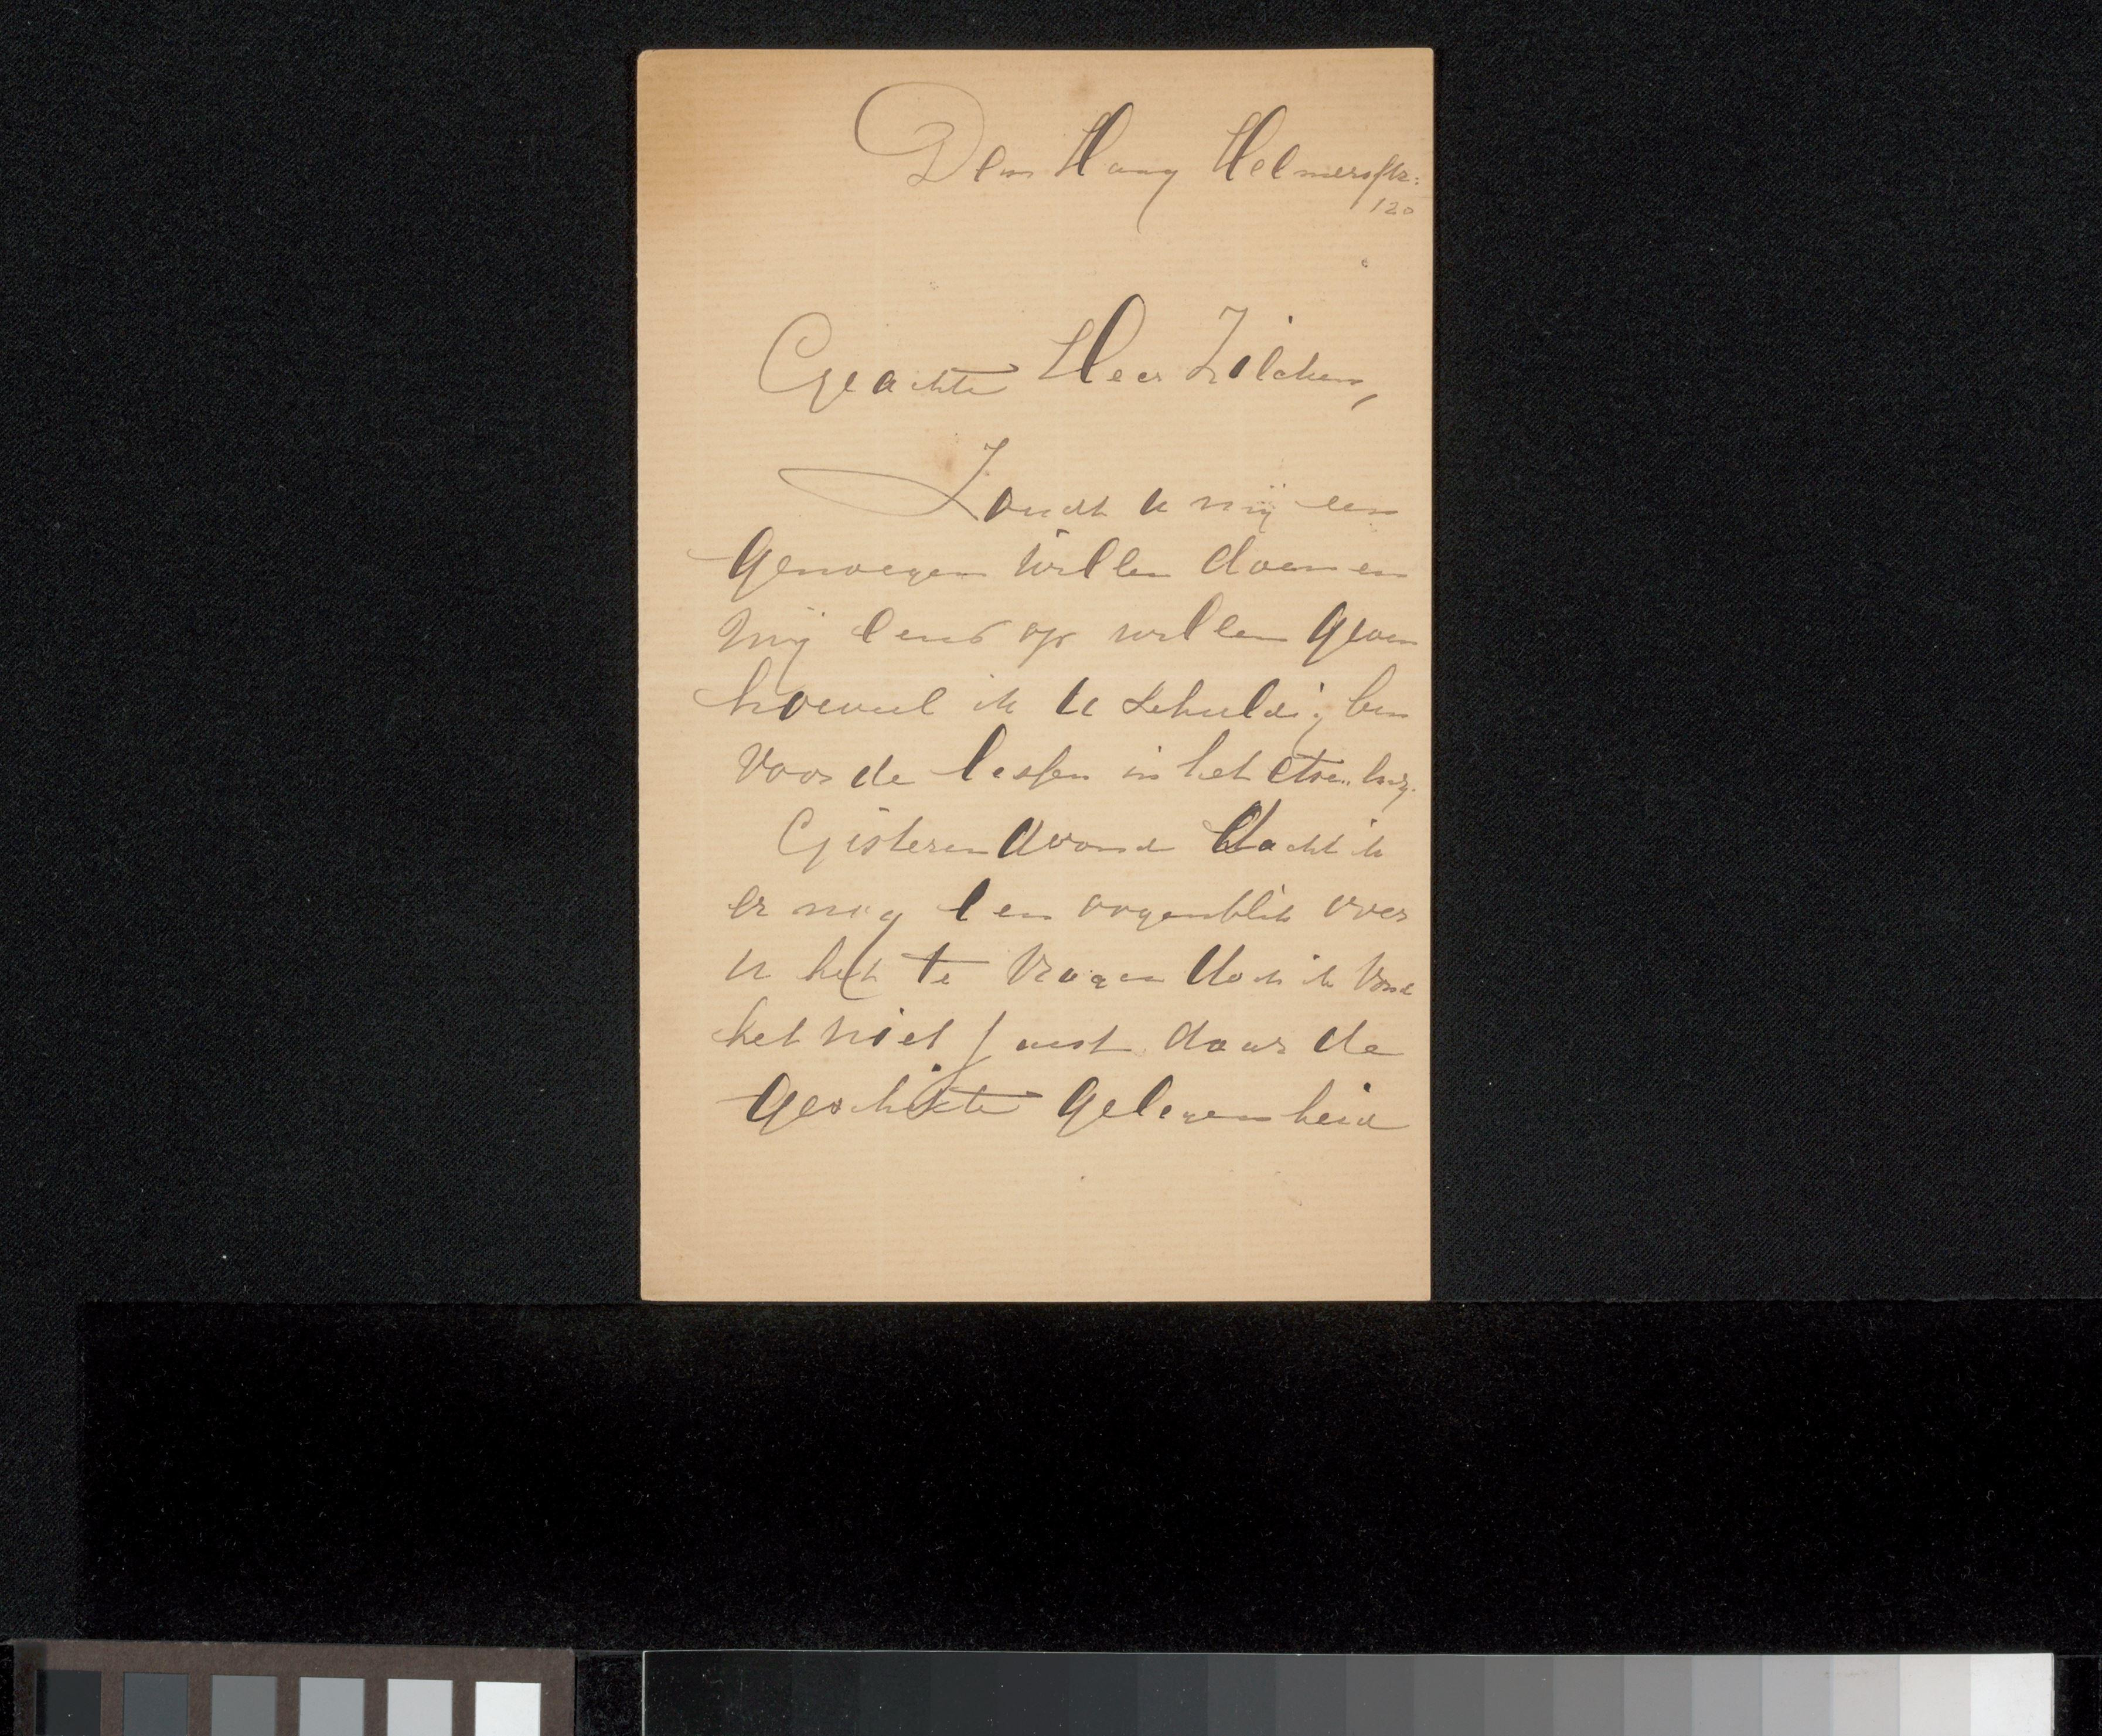 Den Haag Helmersstr:
120
Geachte Heer Zilcken,
Zoudt u mij een
genoegen willen doen en
mij eens op willen geven
hoeveel ik u schuldig ben
voor de lessen in het etsen
Gisteren avond dacht ik
er nog een oogenblik over
u het te vragen doch ik vond
het niet juist daar de
geschikte gelegenheid